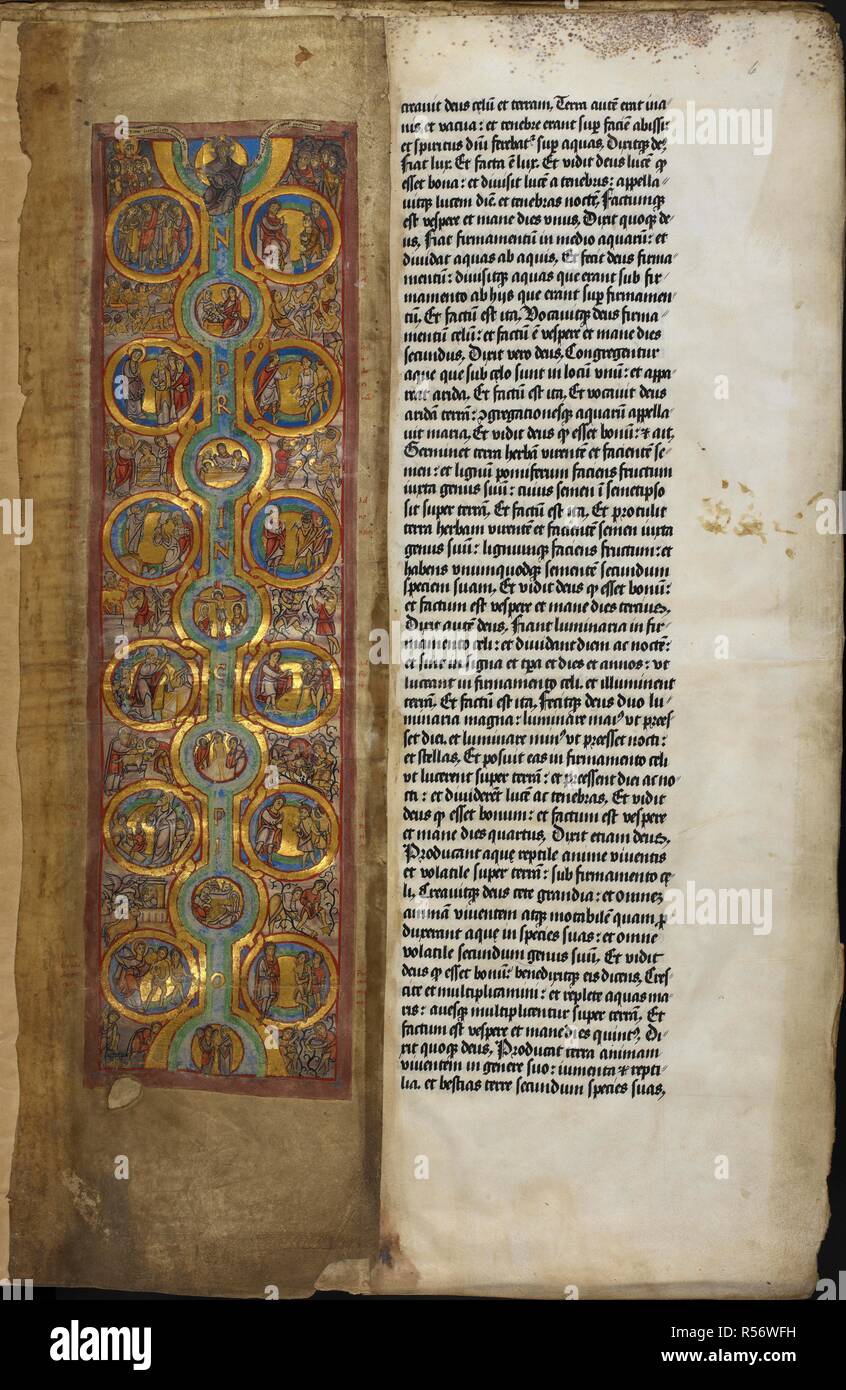 6
N
PR
IN
CI
PI
O
creavit deus celū et terram, Terra autē erat ina⸗
nis et vacua: et tenebre erant sup faciē abissi:
et spiritus dnī ferebatʳ sup aquas, Dixitqꝫ deꝰ,
Fiat lux. Et facta ē lux. Et vidit deus lucē ꝙ
esset bona: et divisit lucē a tenebris: appella⸗
vitqꝫ lucem diē et tenebras noctē, Factumqꝫ
est vespere et mane dies vnus, Dixit quoqꝫ de⸗
us, Fiat firmamentū in medio aquarū: et
dividat aquas ab aquis, Et fecit deus firma⸗
mentū: divisitqꝫ aquas que erant sub fir⸗
mamento ab hijs que erant sup firmamen⸗
tū, Et factū est ita, Vocavitqꝫ deus firma⸗
mentū celū: et factū ē vespere et mane dies
secundus, Dixit vero deus, Congregentur
aque que sub celo sunt in locū vnū: et appa⸗
reat arida, Et factū est ita, Et vocavit deus
aridā terrā: ꝯgregationesqꝫ aquarū appella⸗
vit maria, Et vidit deus ꝙ esset bonū: ⁊ ait,
Germinet terra herbā virentē et facientē se⸗
men: et lignū pomiferum faciens fructum
iuxta genus suū: cuius semen ī semetipso
sit super terrā, Et factū est ita, Et protulit
terra herbam virentē et facientē semen iuxta
genus suū: lignumqꝫ faciens fructum: et
habens vnumquodqꝫ sementē secundum
speciem suam, Et vidit deus ꝙ esset bonū:
et factum est vespere et mane dies tercius,
Dixit autē deus, Fiant luminaria in fir⸗
mamento celi: et dividant diem ac noctē:
et sint in signa et tpa et dies et annos: vt
luceant in firmamento celi. et illuminent
terrā, Et factū est ita, Fecitqꝫ deus duo lu⸗
minaria magna: luminare maiꝰ vt prees⸗
set diei. et luminare minꝰ vt preesset nocti:
et stellas, Et posuit eas in firmamento celi
vt lucerent super terrā: et preessent diei ac no⸗
cti: et dividerēt lucē ac tenebras, Et vidit
deus ꝙ esset bonum: et factum est vespere
et mane dies quartus, Dixit etiam deus,
Producant aque reptile anime viventis
et volatile super terrā: sub firmamento ce⸗
li, Creavitqꝫ deus cete grandia: et omnem
animā viventem atqꝫ motabilē quam p̱
duxerant aque in species suas: et omne
volatile secundum genus suū, Et vidit
deus ꝙ esset bonū: benedixitqꝫ eis dicens, Cres⸗
cite et multiplicamini: et replete aquas ma⸗
ris: avesqꝫ multiplicentur super terrā, Et
factum est vespere et mane dies quintꝰ, Di⸗
xit quoqꝫ deus, Producat terra animam
viventem in genere suo: iumenta ⁊ repti⸗
lia. et bestias terre secundum species suas,
a
alamy
alamy
Image ID: R56WFH
www.alamy.com